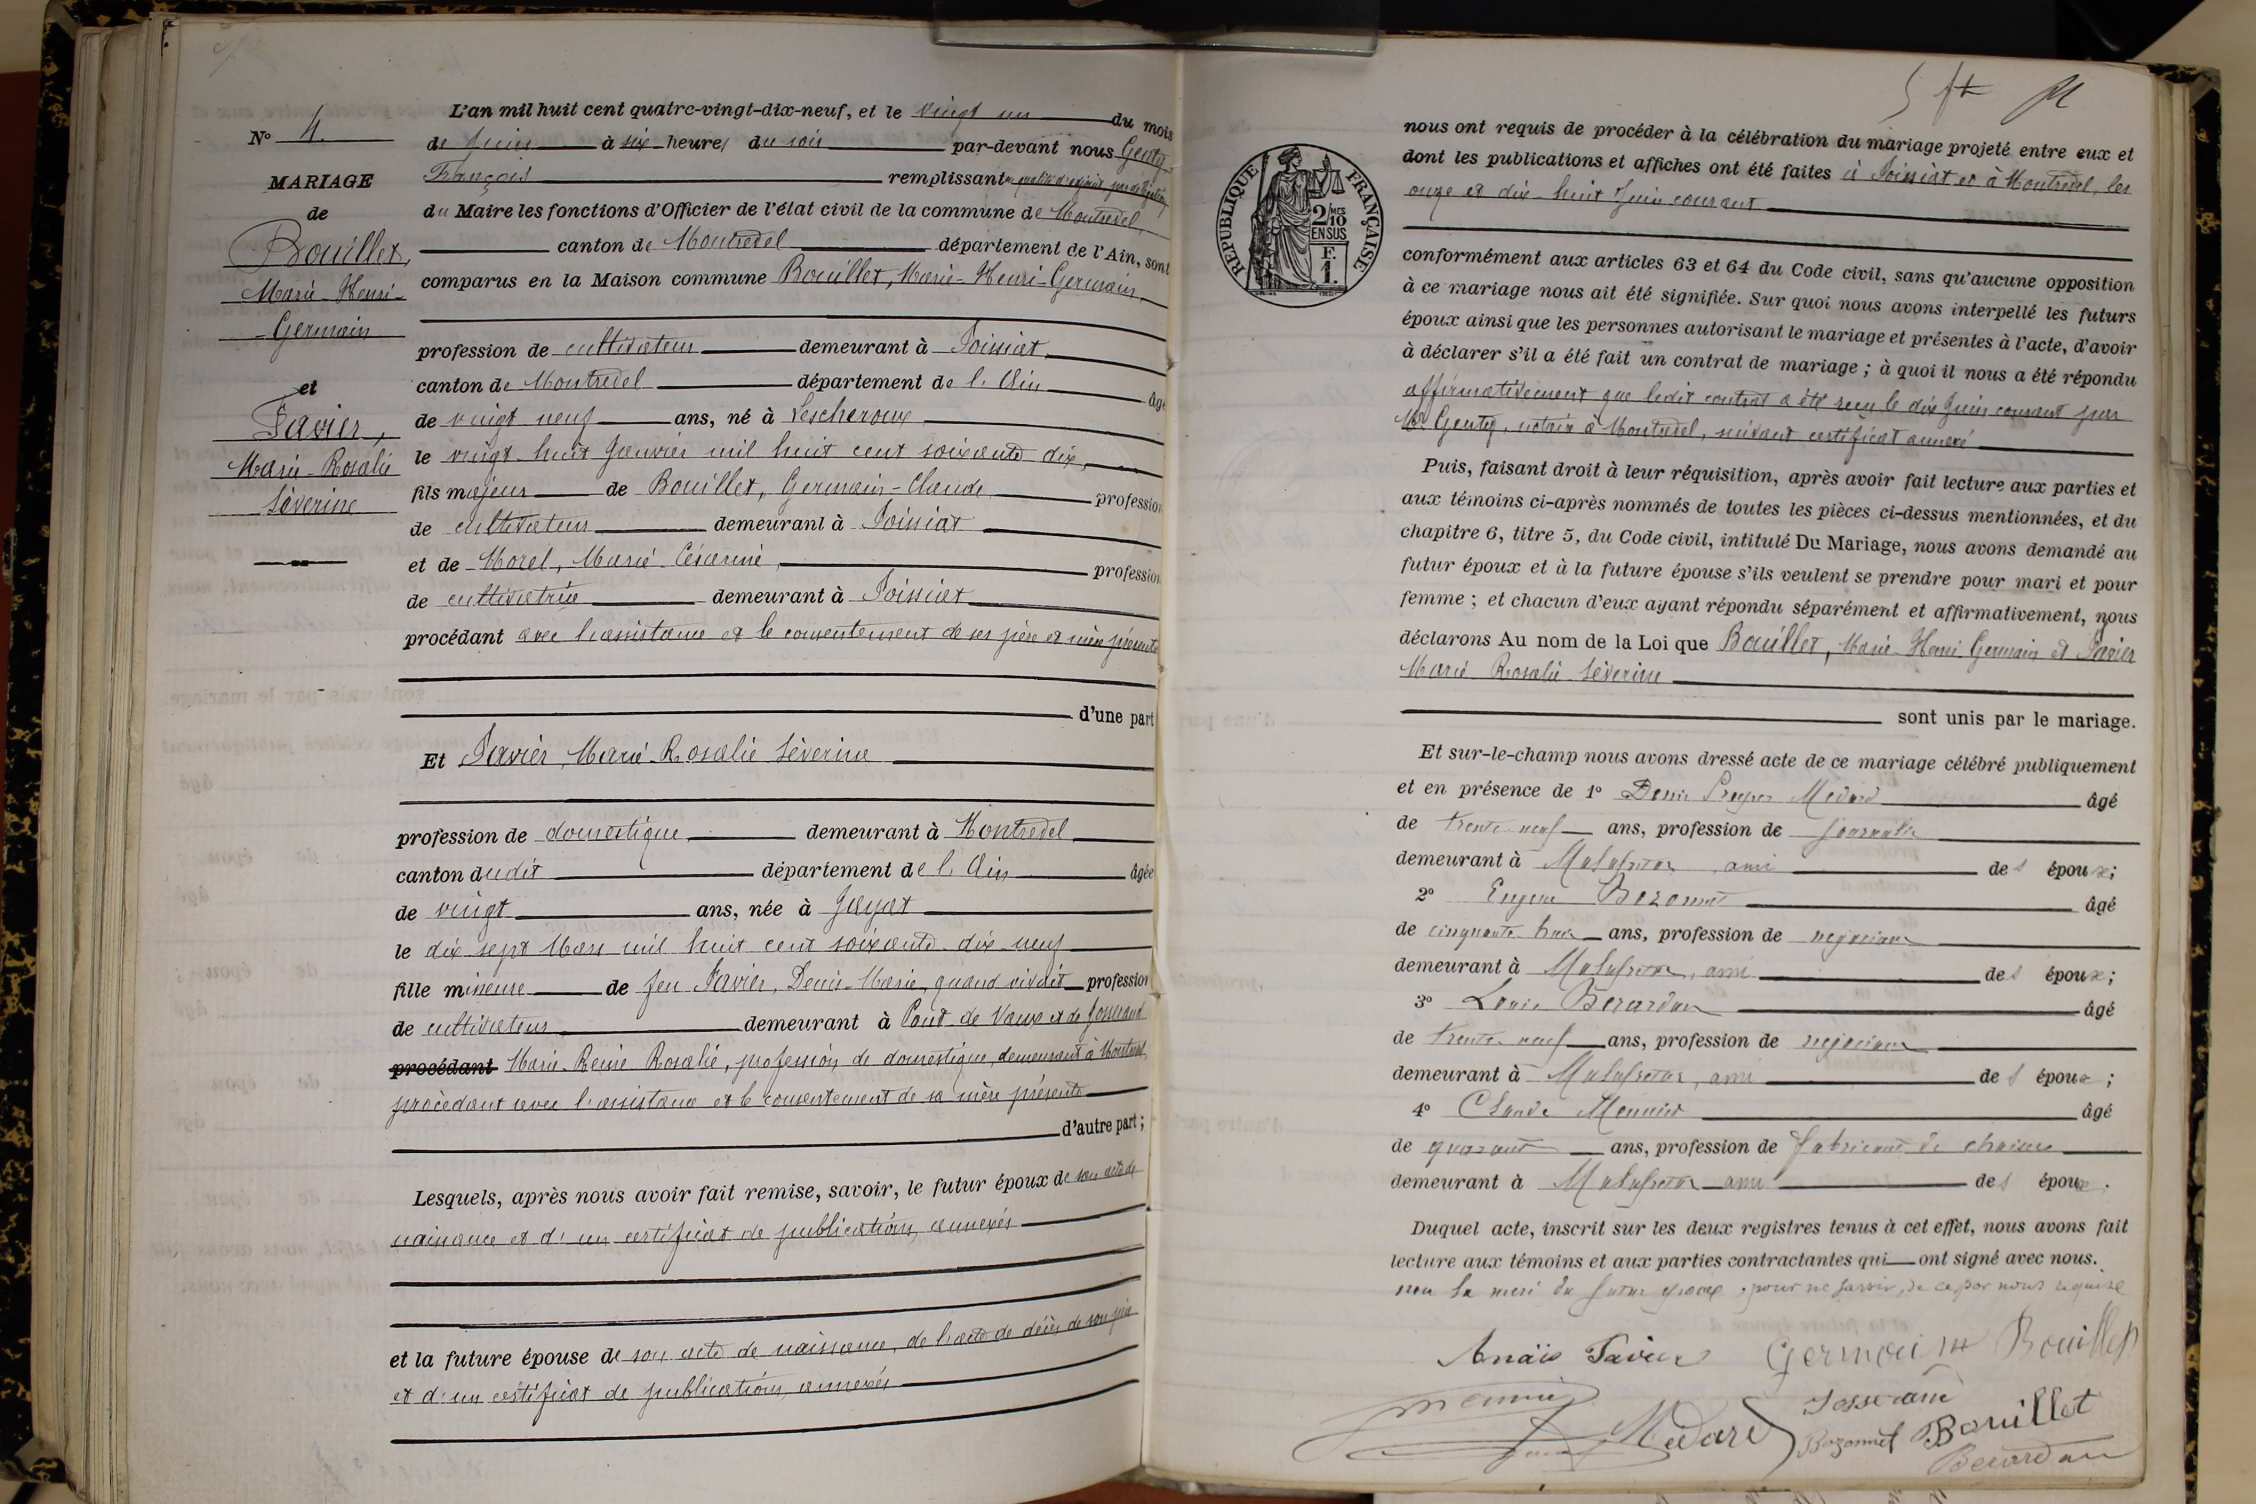 N° 4.
MARIAGE
de
Bouillet,
Marie-Henri-
Germain
et
Favier,
Marie-Rosalie
Séverine
L'an mil huit cent quatre-vingt-dix-neuf, et le vingt un du mois
de Juin à six heures du soir par-devant nous Genty
François remplissant
du Maire les fonctions d'Officier de l'état civil de la commune de Montrevel,
canton de Montrevel département de l'Ain, sont
comparus en la Maison commune Bouillet, Marie-Henri-Germain
profession de cultivateur demeurant à Foissiat
canton de Montrevel département de l'Ain âgé
de vingt neuf ans, né à Lescheroux
le vingt-huit Janvier mil huit cent soixante dix,
fils majeur de Bouillet, Germain-Claude profession
de cultivateur demeurant à Foissiat
et de Morel, Marie Césarine, profession
de cultivatrice demeurant à Foissiat
procédant avec l'assistance et le consentement de ses père et mère présents
d'une part
Et Favier, Marie-Rosalie Séverine
profession de domestique demeurant à Montrevel
canton dudit département de l'Ain âgée
de vingt ans, née à Jayat
le dix sept Mars mil huit cent soixante-dix-neuf
fille mineure de feu Favier, Denis-Marie, quand vivait profession
de cultivateur demeurant à Pont-de-Vaux et de Josserand
procédant Marie-Reine Rosalie, profession de domestique, demeurant à Montrevel
procédant avec l'assistance et le consentement de sa mère présente
d'autre part;
Lesquels, après nous avoir fait remise, savoir, le futur époux de son acte de
naissance et d'un certificat de publication, annexés
et la future épouse de son acte de naissance, de l'acte de décès de son père
et d'un certificat de publication, annexés
RÉPUBLIQUE FRANÇAISE
2/10 MES
EN SUS
F.
1.
nous ont requis de procéder à la célébration du mariage projeté entre eux et
dont les publications et affiches ont été faites à Foissiat et à Montrevel, les
onze et dix-huit Juin courant
conformément aux articles 63 et 64 du Code civil, sans qu'aucune opposition
à ce mariage nous ait été signifiée. Sur quoi nous avons interpellé les futurs
époux ainsi que les personnes autorisant le mariage et présentes à l'acte, d'avoir
à déclarer s'il a été fait un contrat de mariage; à quoi il nous a été répondu
affirmativement que ledit contrat a été reçu le dix Juin courant par
Me Genty, notaire à Montrevel, suivant certificat annexé
Puis, faisant droit à leur réquisition, après avoir fait lecture aux parties et
aux témoins ci-après nommés de toutes les pièces ci-dessus mentionnées, et du
chapitre 6, titre 5, du Code civil, intitulé Du Mariage, nous avons demandé au
futur époux et à la future épouse s'ils veulent se prendre pour mari et pour
femme; et chacun d'eux ayant répondu séparément et affirmativement, nous
déclarons Au nom de la Loi que Bouillet, Marie-Henri-Germain et Favier
Marie-Rosalie-Séverine
sont unis par le mariage.
Et sur-le-champ nous avons dressé acte de ce mariage célébré publiquement
et en présence de 1° Denis Prosper Médard âgé
de trente-neuf ans, profession de
demeurant à Malafretaz, ami des époux;
2° Eugène Bozonnet âgé
de cinquante trois ans, profession de négociant
demeurant à Malafretaz, ami des époux;
3° Louis Berardan âgé
de trente-neuf ans, profession de négociant
demeurant à Malafretaz, ami des époux;
4° Claude Monnier âgé
de quarante ans, profession de fabricant de chaises
demeurant à Malafretaz ami des époux.
Duquel acte, inscrit sur les deux registres tenus à cet effet, nous avons fait
lecture aux témoins et aux parties contractantes qui ont signé avec nous.
non la mère du futur époux, pour ne savoir, de ce par nous requise
Anaïs Favier Germain Bouillet
Monnier Josserand
Médard Bozonnet Bouillet
Berardan